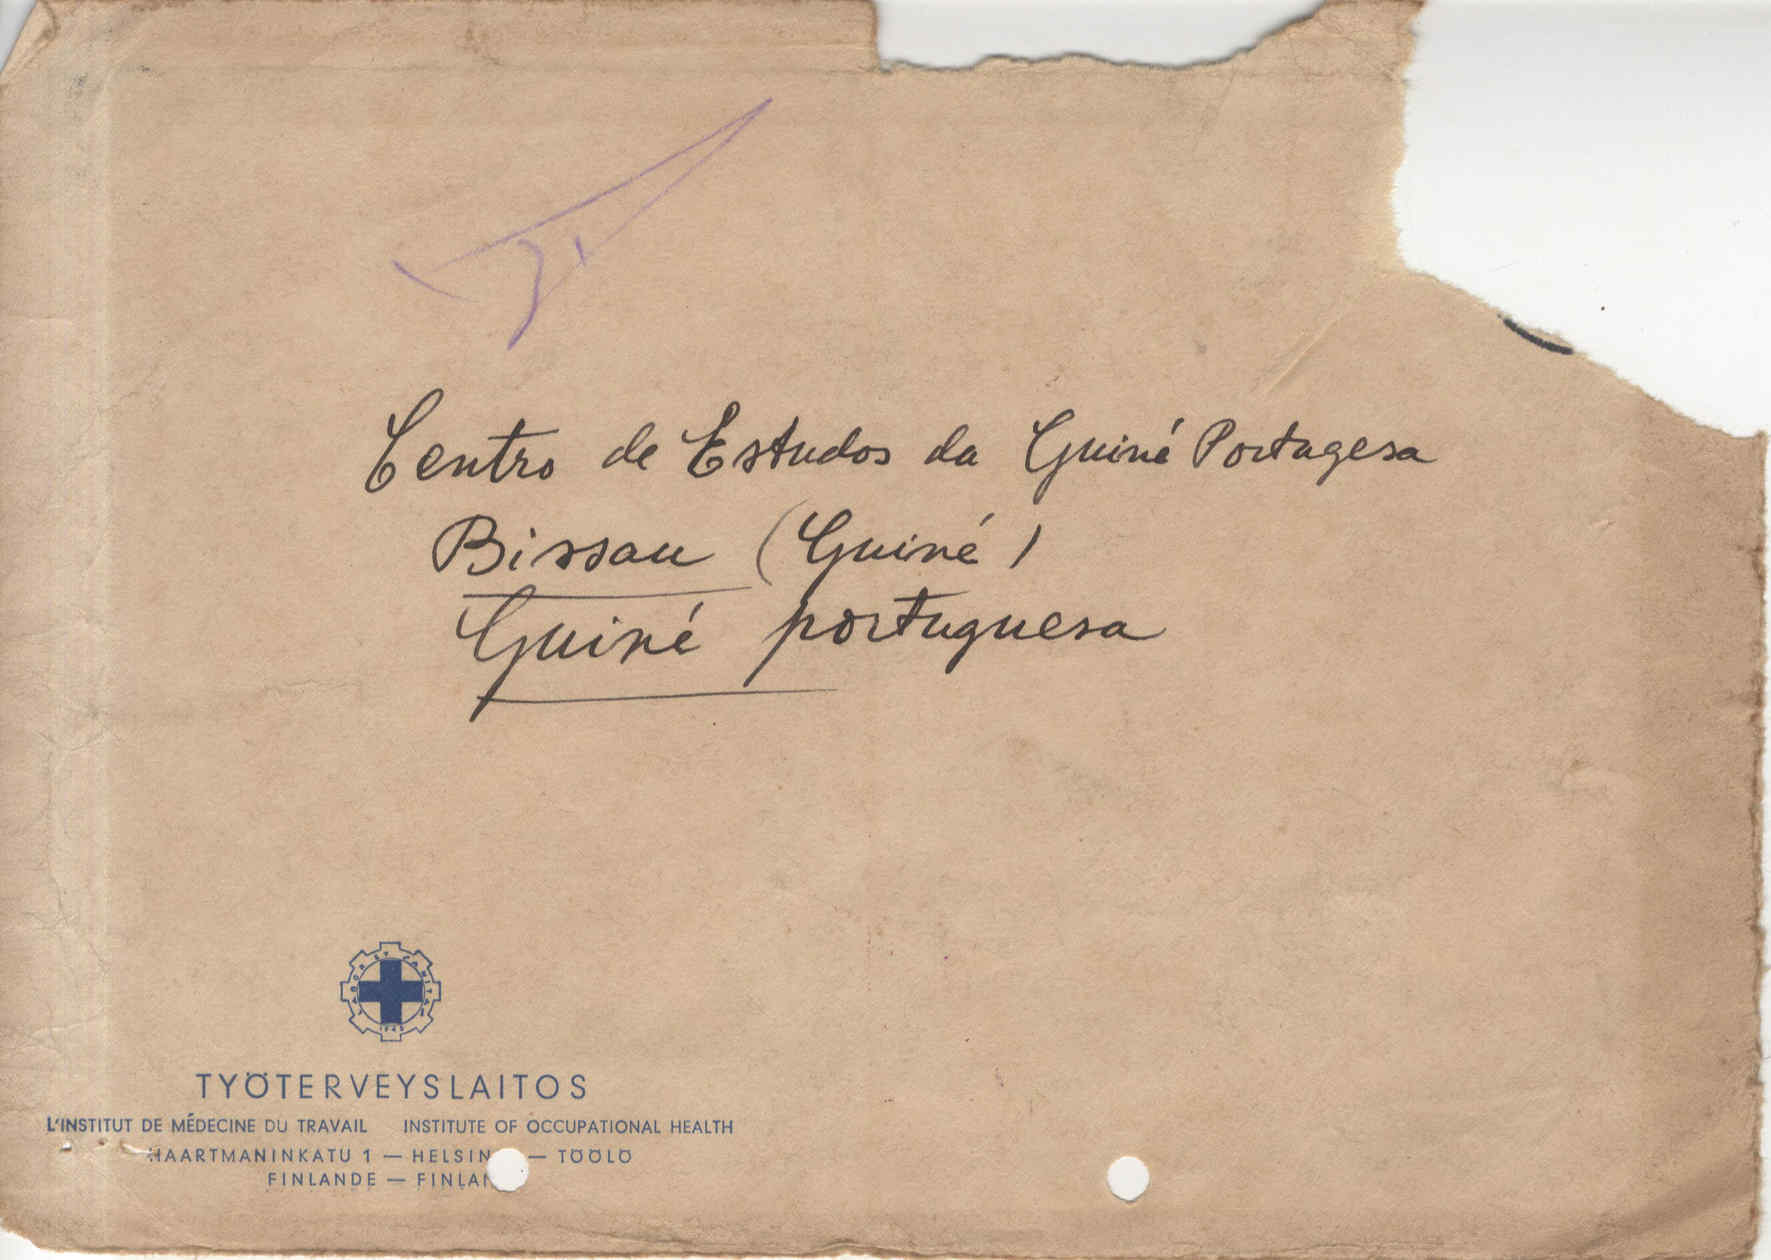 Centro de Estudos da Guiné Portagesa
Bissau (Guiné)
Guiné portuguesa
LABOR ET SANITAS
1945
TYÖTERVEYSLAITOS
L'INSTITUT DE MÉDECINE DU TRAVAIL INSTITUTE OF OCCUPATIONAL HEALTH
HAARTMANINKATU 1 — HELSIN — TÖÖLÖ
FINLANDE — FINLAN